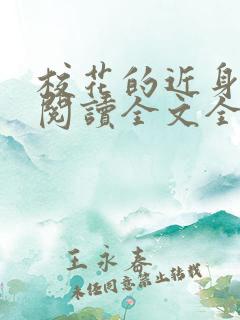 校花的近身
閱讀全文全
王永春
未经同意禁止转载